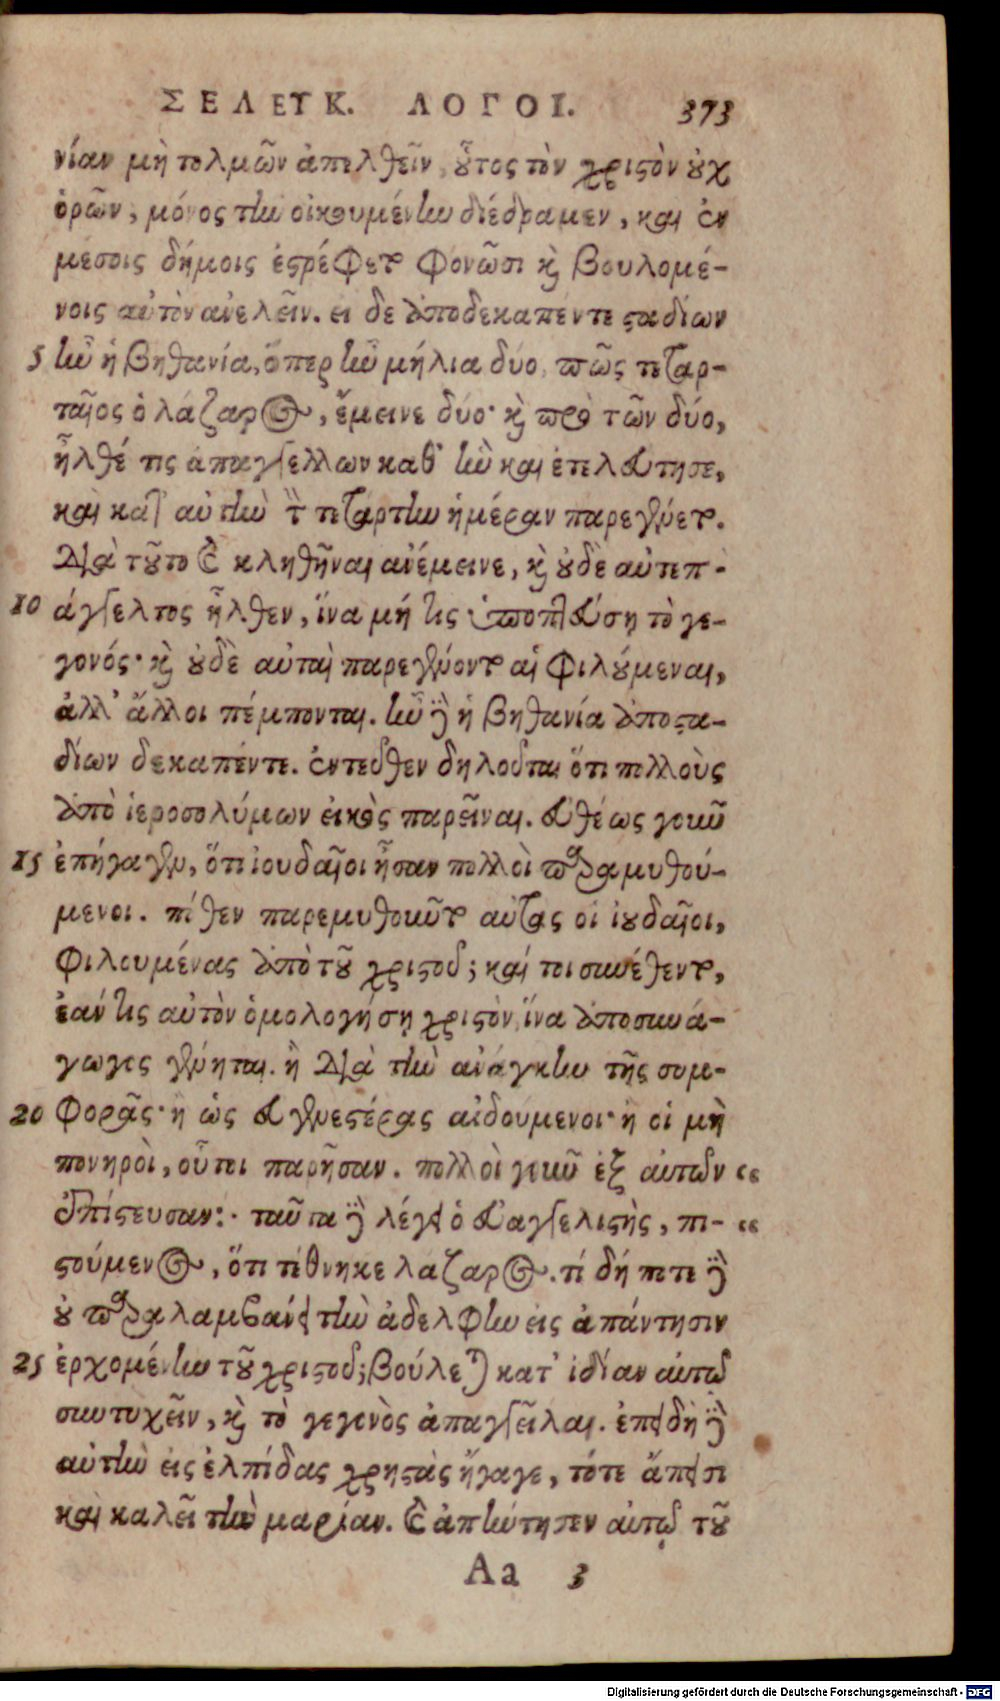 ΣΕΛΕΥΚ. ΛΟΓΟΙ. 373
νίαν μὴ τολμῶν ἀπελθεῖν, οὗτος τὸν χριστὸν οὐχ
ὁρῶν, μόνος τὴν οἰκουμένην διέδραμεν, καὶ ἐν
μέσοις δήμοις ἐστρέφετο φονῶσι καὶ βουλομέ-
νοις αὐτὸν ἀνελεῖν. εἰ δὲ ἀπὸ δεκαπέντε σταδίων
5 ἦν ἡ βηθανία, ὅπερ ἦν μήλια δύο, πῶς τεταρ-
ταῖος ὁ λάζαρος, ἔμεινε δύο· καὶ πρὸ τῶν δύο,
ἦλθέ τις ἀπαγγέλλων καθ' ἣν καὶ ἐτελεύτησε,
καὶ κατ' αὐτὴν τὴν τετάρτην ἡμέραν παρεγένετο.
Διὰ τοῦτο καὶ κληθῆναι ἀνέμεινε, καὶ οὐδὲ αὐτεπ-
10 άγγελτος ἦλθεν, ἵνα μή τις ὑποπτεύσῃ τὸ γε-
γονός· καὶ οὐδὲ αὐταὶ παρεγένοντο αἱ φιλούμεναι,
ἀλλ' ἄλλοι πέμπονται. ἦν δὲ ἡ βηθανία ἀπὸ στα-
δίων δεκαπέντε. ἐντεῦθεν δηλοῦται ὅτι πολλοὺς
ἀπὸ ἱεροσολύμων εἰκὸς παρεῖναι. εὐθέως γοῦν
15 ἐπήγαγεν, ὅτι ἰουδαῖοι ἦσαν πολλοὶ παραμυθού-
μενοι. πόθεν παρεμυθοῦντο αὐτὰς οἱ ἰουδαῖοι,
φιλουμένας ἀπὸ τοῦ χριστοῦ; καί τοι συνέθεντο,
ἐάν τις αὐτὸν ὁμολογήσῃ χριστὸν, ἵνα ἀποσυνά-
γωγος γένηται. ἢ διὰ τὴν ἀνάγκην τῆς συμ-
20 φορᾶς· ἢ ὡς εὐγενεστέρας αἰδούμενοι· ἢ οἱ μὴ
πονηροὶ, οὗτοι παρῆσαν. πολλοὶ γοῦν ἐξ αὐτῶν “
ἐπίστευσαν:· ταῦτα δὲ λέγει ὁ εὐαγγελιστὴς, πι- “
στούμενος, ὅτι τέθνηκε λάζαρος. τί δή ποτε δὲ
οὐ παραλαμβάνει τὴν ἀδελφὴν εἰς ἀπάντησιν
25 ἐρχομένην τοῦ χριστοῦ; βούλεται κατ' ἰδίαν αὐτῷ
συντυχεῖν, καὶ τὸ γεγονὸς ἀπαγγεῖλαι. ἐπειδὴ δὲ
αὐτὴν εἰς ἐλπίδας χρηστὰς ἤγαγε, τότε ἄπεισι
καὶ καλεῖ τὴν μαρίαν. καὶ ἀπήντησεν αὐτῷ τοῦ
Aa 3
Digitalisierung gefördert durch die Deutsche Forschungsgemeinschaft - DFG